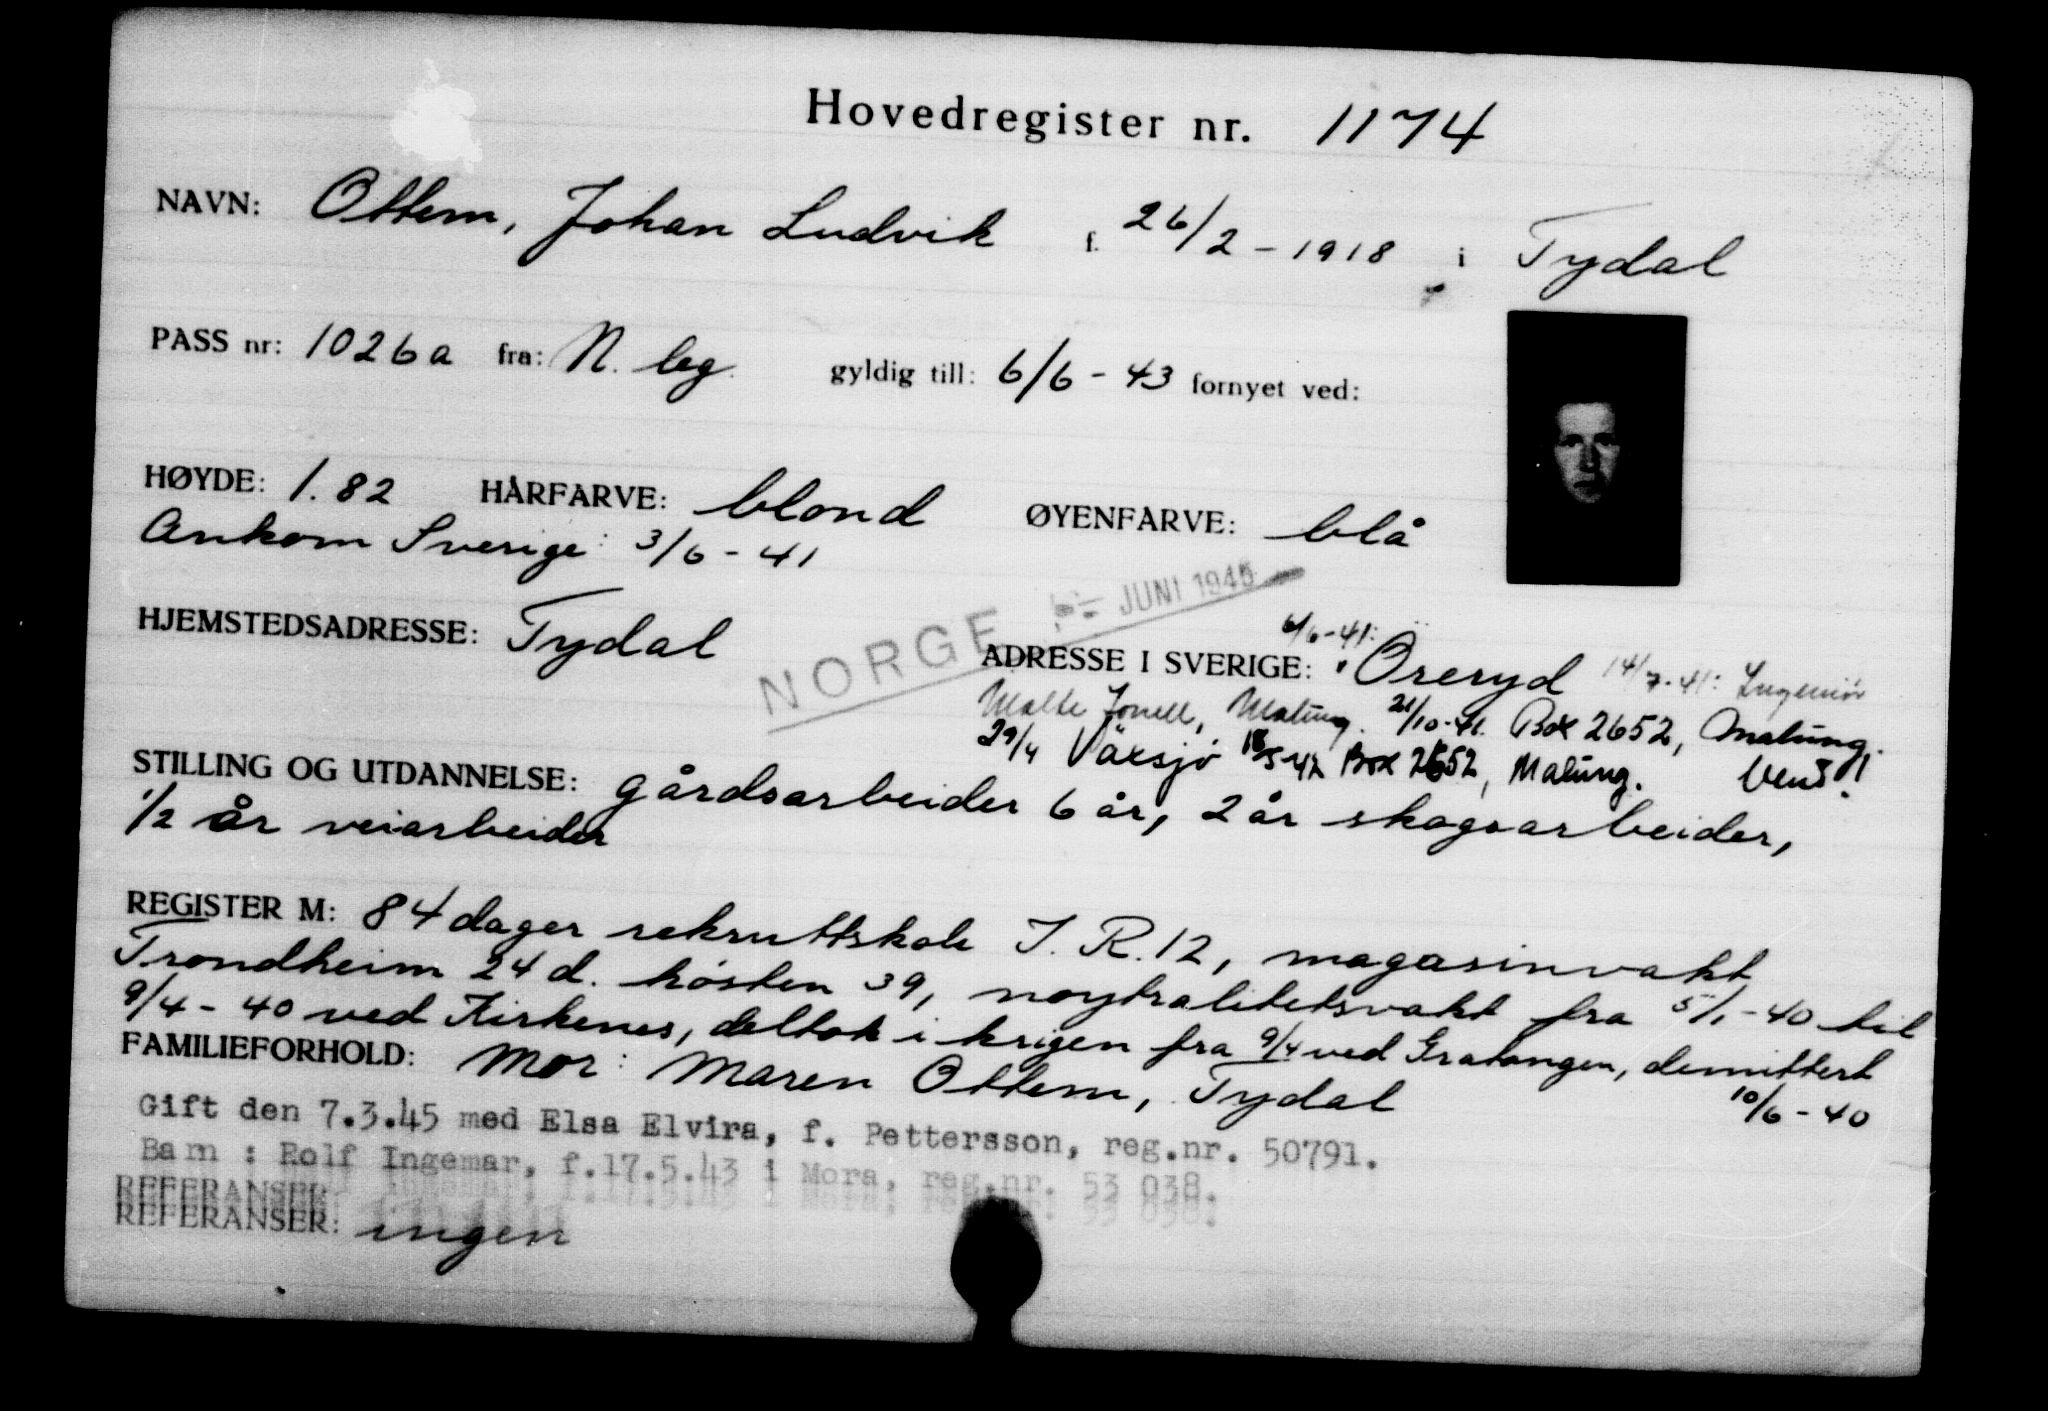 Hovedregister nr. 1174
NAVN: Ottem, Johan Ludvik f. 26/2-1918 i Tydal
PASS nr: 1026a fra: N. leg. gyldig till: 6/6-43 fornyet ved:
HØYDE: 1.82 HÅRFARVE: blond ØYENFARVE: blå
Ankom Sverige: 3/6-41
NORGE JUNI 1945
HJEMSTEDSADRESSE: Tydal
6/6-41:
ADRESSE I SVERIGE: Öreryd 14/7-41: Ingeniør
Malte Jonell, Malung. 21/10-41. Box 2652, Malung.
29/4 Växsjø 18/5-42 Box 2652, Malung. Vend!
STILLING OG UTDANNELSE: gårdsarbeider 6 år, 2 år skogsarbeider,
1/2 år veiarbeider
REGISTER M: 84 dager rekruttskole I.R.12, magasinvakt
Trondheim 24 d. høsten 39, nøytralitetsvakt fra 5/1-40 til
9/4-40 ved Kirkenes, deltok i krigen fra 9/4 ved Gratangen, demittert
10/6-40
FAMILIEFORHOLD: Mor: Maren Ottem, Tydal
Gift den 7.3.45 med Elsa Elvira, f. Pettersson, reg.nr. 50791.
Barn : Rolf Ingemar, f.17.5.43 i Mora, reg.nr. 53 038.
REFERANSER: ingen